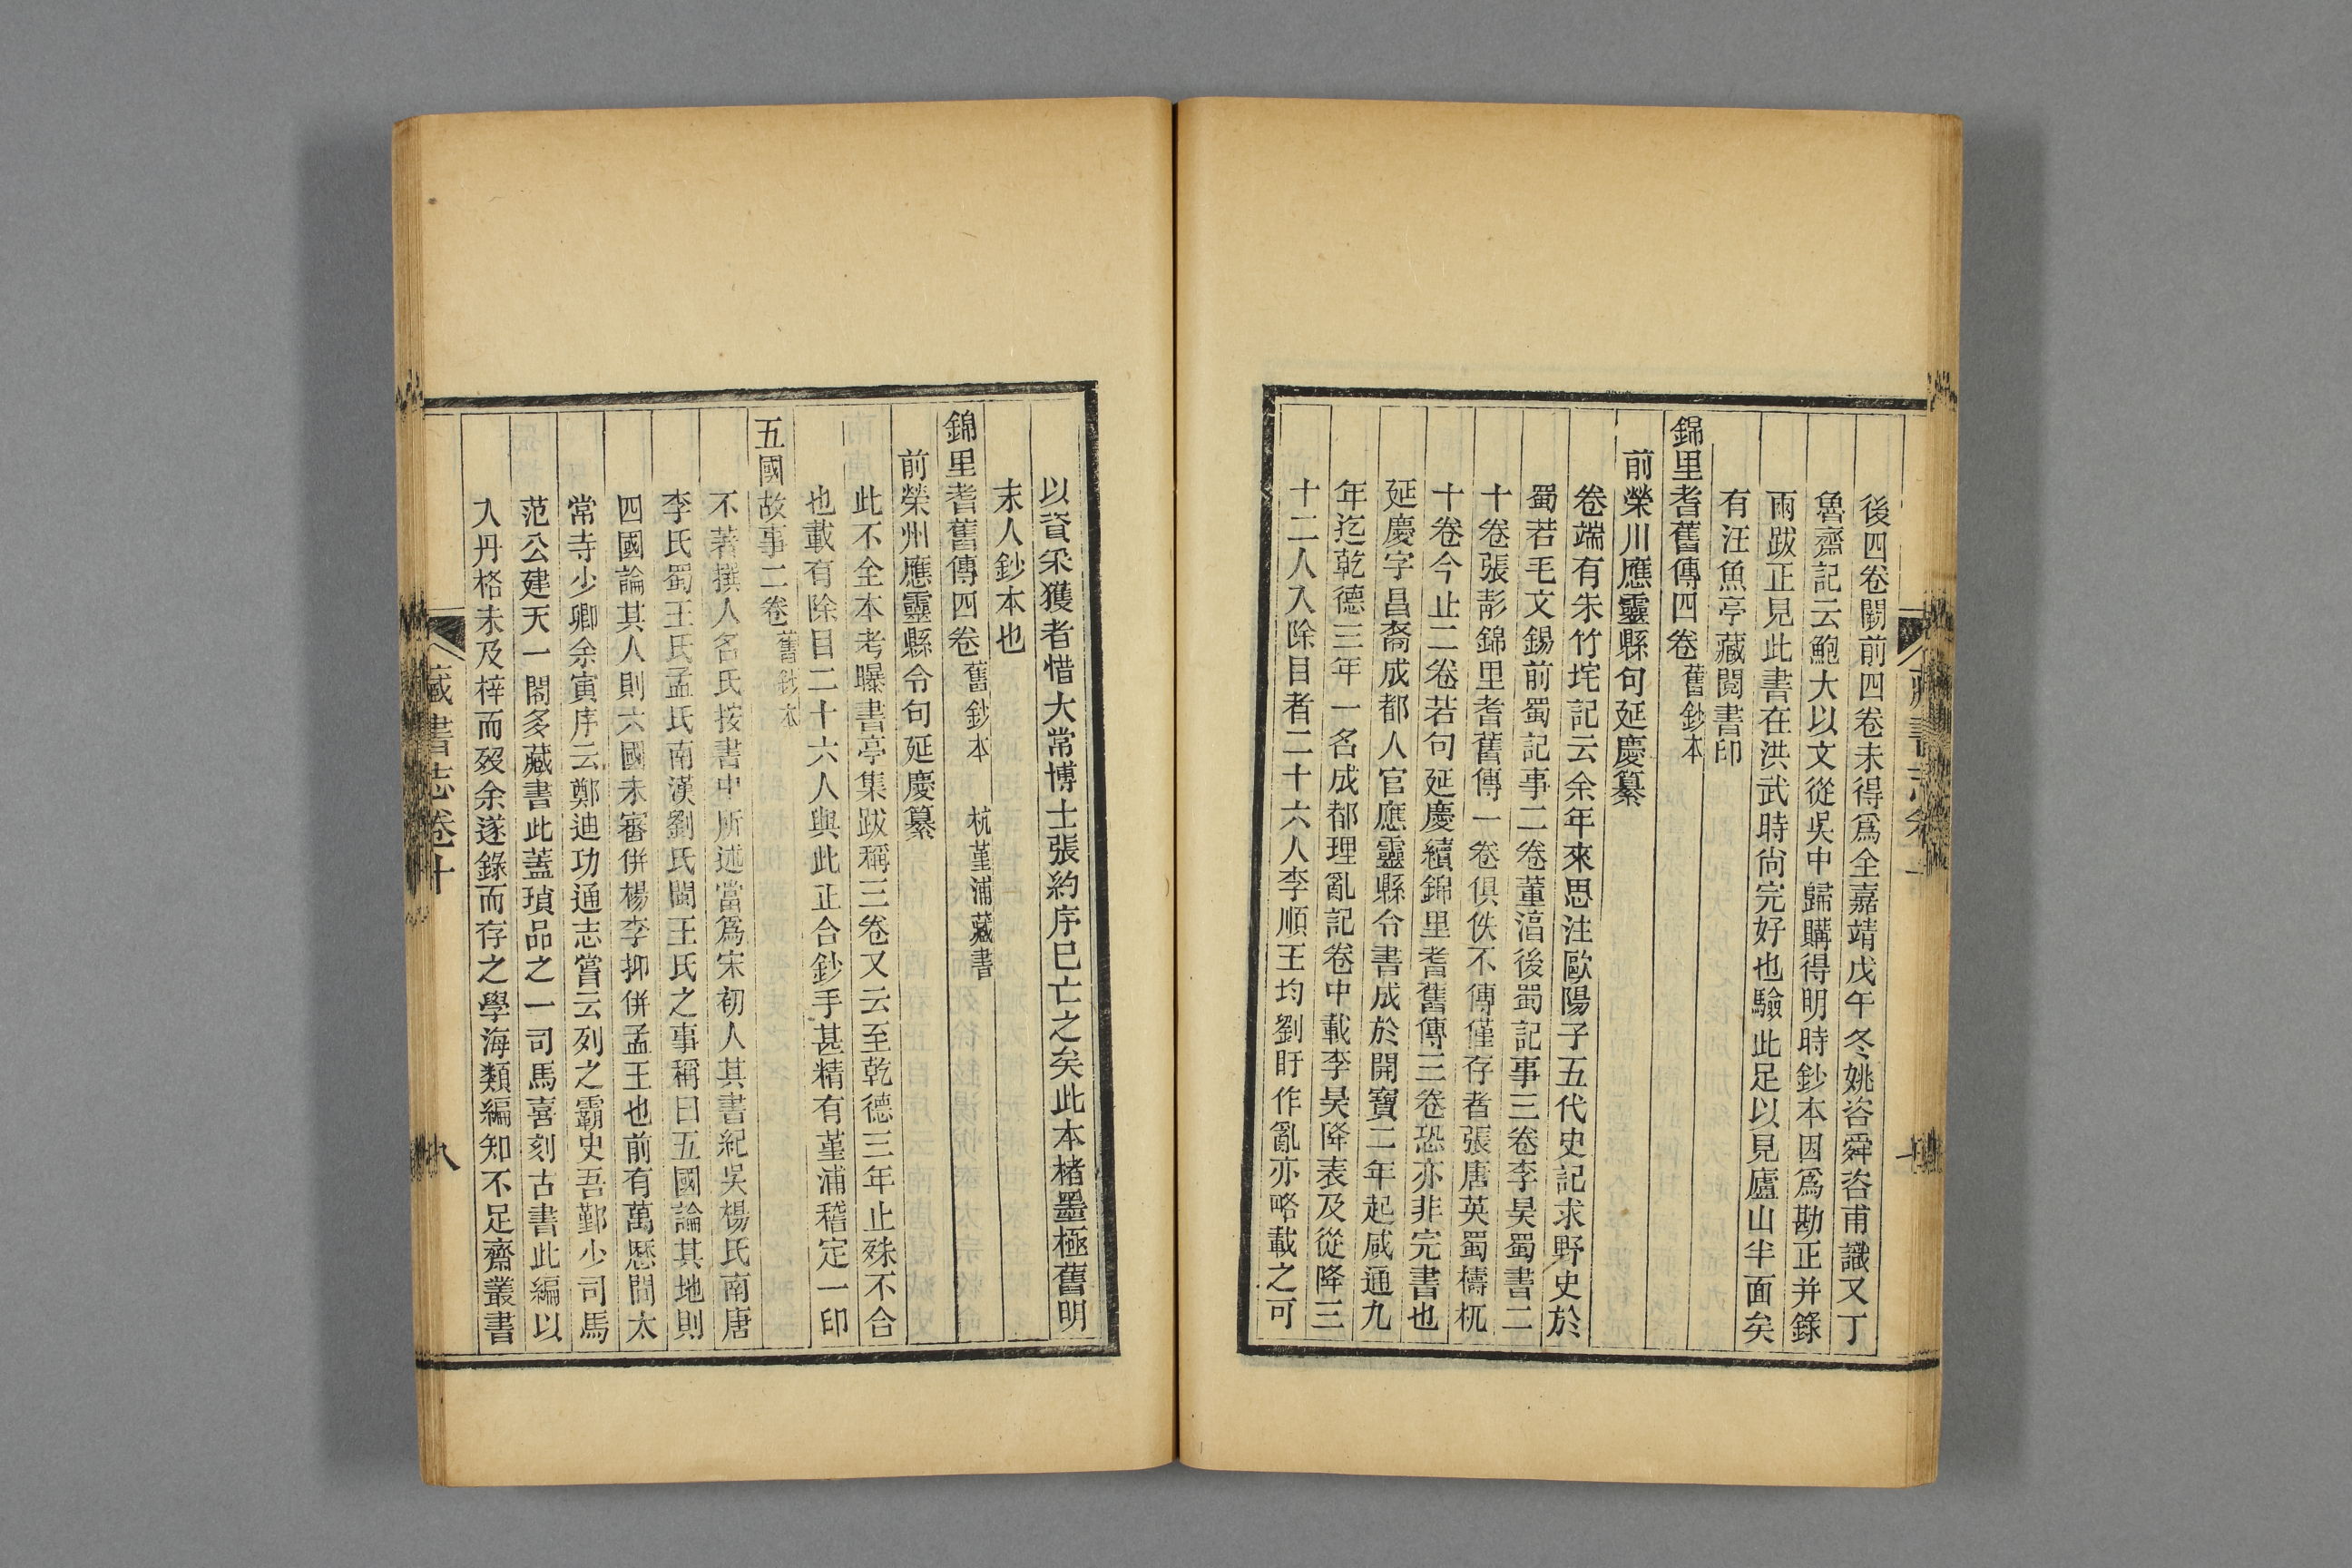 後四卷闕前四卷未得爲全嘉靖戊午冬姚咨舜咨甫識又丁
魯齋記云鮑大以文從吳中歸購得明時鈔本因爲勘正并錄
雨跋正見此書在洪武時尙完好也驗此足以見廬山半面矣
有汪魚亭藏閱書印
錦里耆舊傳四卷 舊鈔本
前榮川應靈縣令句延慶纂
卷端有朱竹垞記云余年來思注歐陽子五代史記求野史於
蜀若毛文錫前蜀記事二卷董淯後蜀記事三卷李昊蜀書二
十卷張彭錦里耆舊傳一卷俱佚不傳僅存者張唐英蜀檮杌
十卷今止二卷若句延慶續錦里耆舊傳三卷恐亦非完書也
延慶字昌裔成都人官應靈縣令書成於開寶二年起咸通九
年迄乾德三年一名成都理亂記卷中載李昊降表及從降三
十二人入除目者二十六人李順王均劉盱作亂亦略載之可
以資采獲者惜大常博士張約序已亡之矣此本楮墨極舊明
末人鈔本也
錦里耆舊傳四卷 舊鈔本 杭堇浦藏書
前榮州應靈縣令句延慶纂
此不全本考曝書亭集跋稱三卷又云至乾德三年止殊不合
也載有除目二十六人與此正合鈔手甚精有堇浦稽定一印
五國故事二卷 舊鈔本
不著撰人名氏按書中所述當爲宋初人其書紀吳楊氏南唐
李氏蜀王氏孟氏南漢劉氏閩王氏之事稱曰五國論其地則
四國論其人則六國未審併楊李抑併孟王也前有萬歷間太
常寺少卿余寅序云鄭迪功通志嘗云列之霸史吾鄞少司馬
范公建天一閣多藏書此蓋瑣品之一司馬喜刻古書此編以
入丹格未及梓而歿余遂錄而存之學海類編知不足齋叢書
藏書志卷十
九